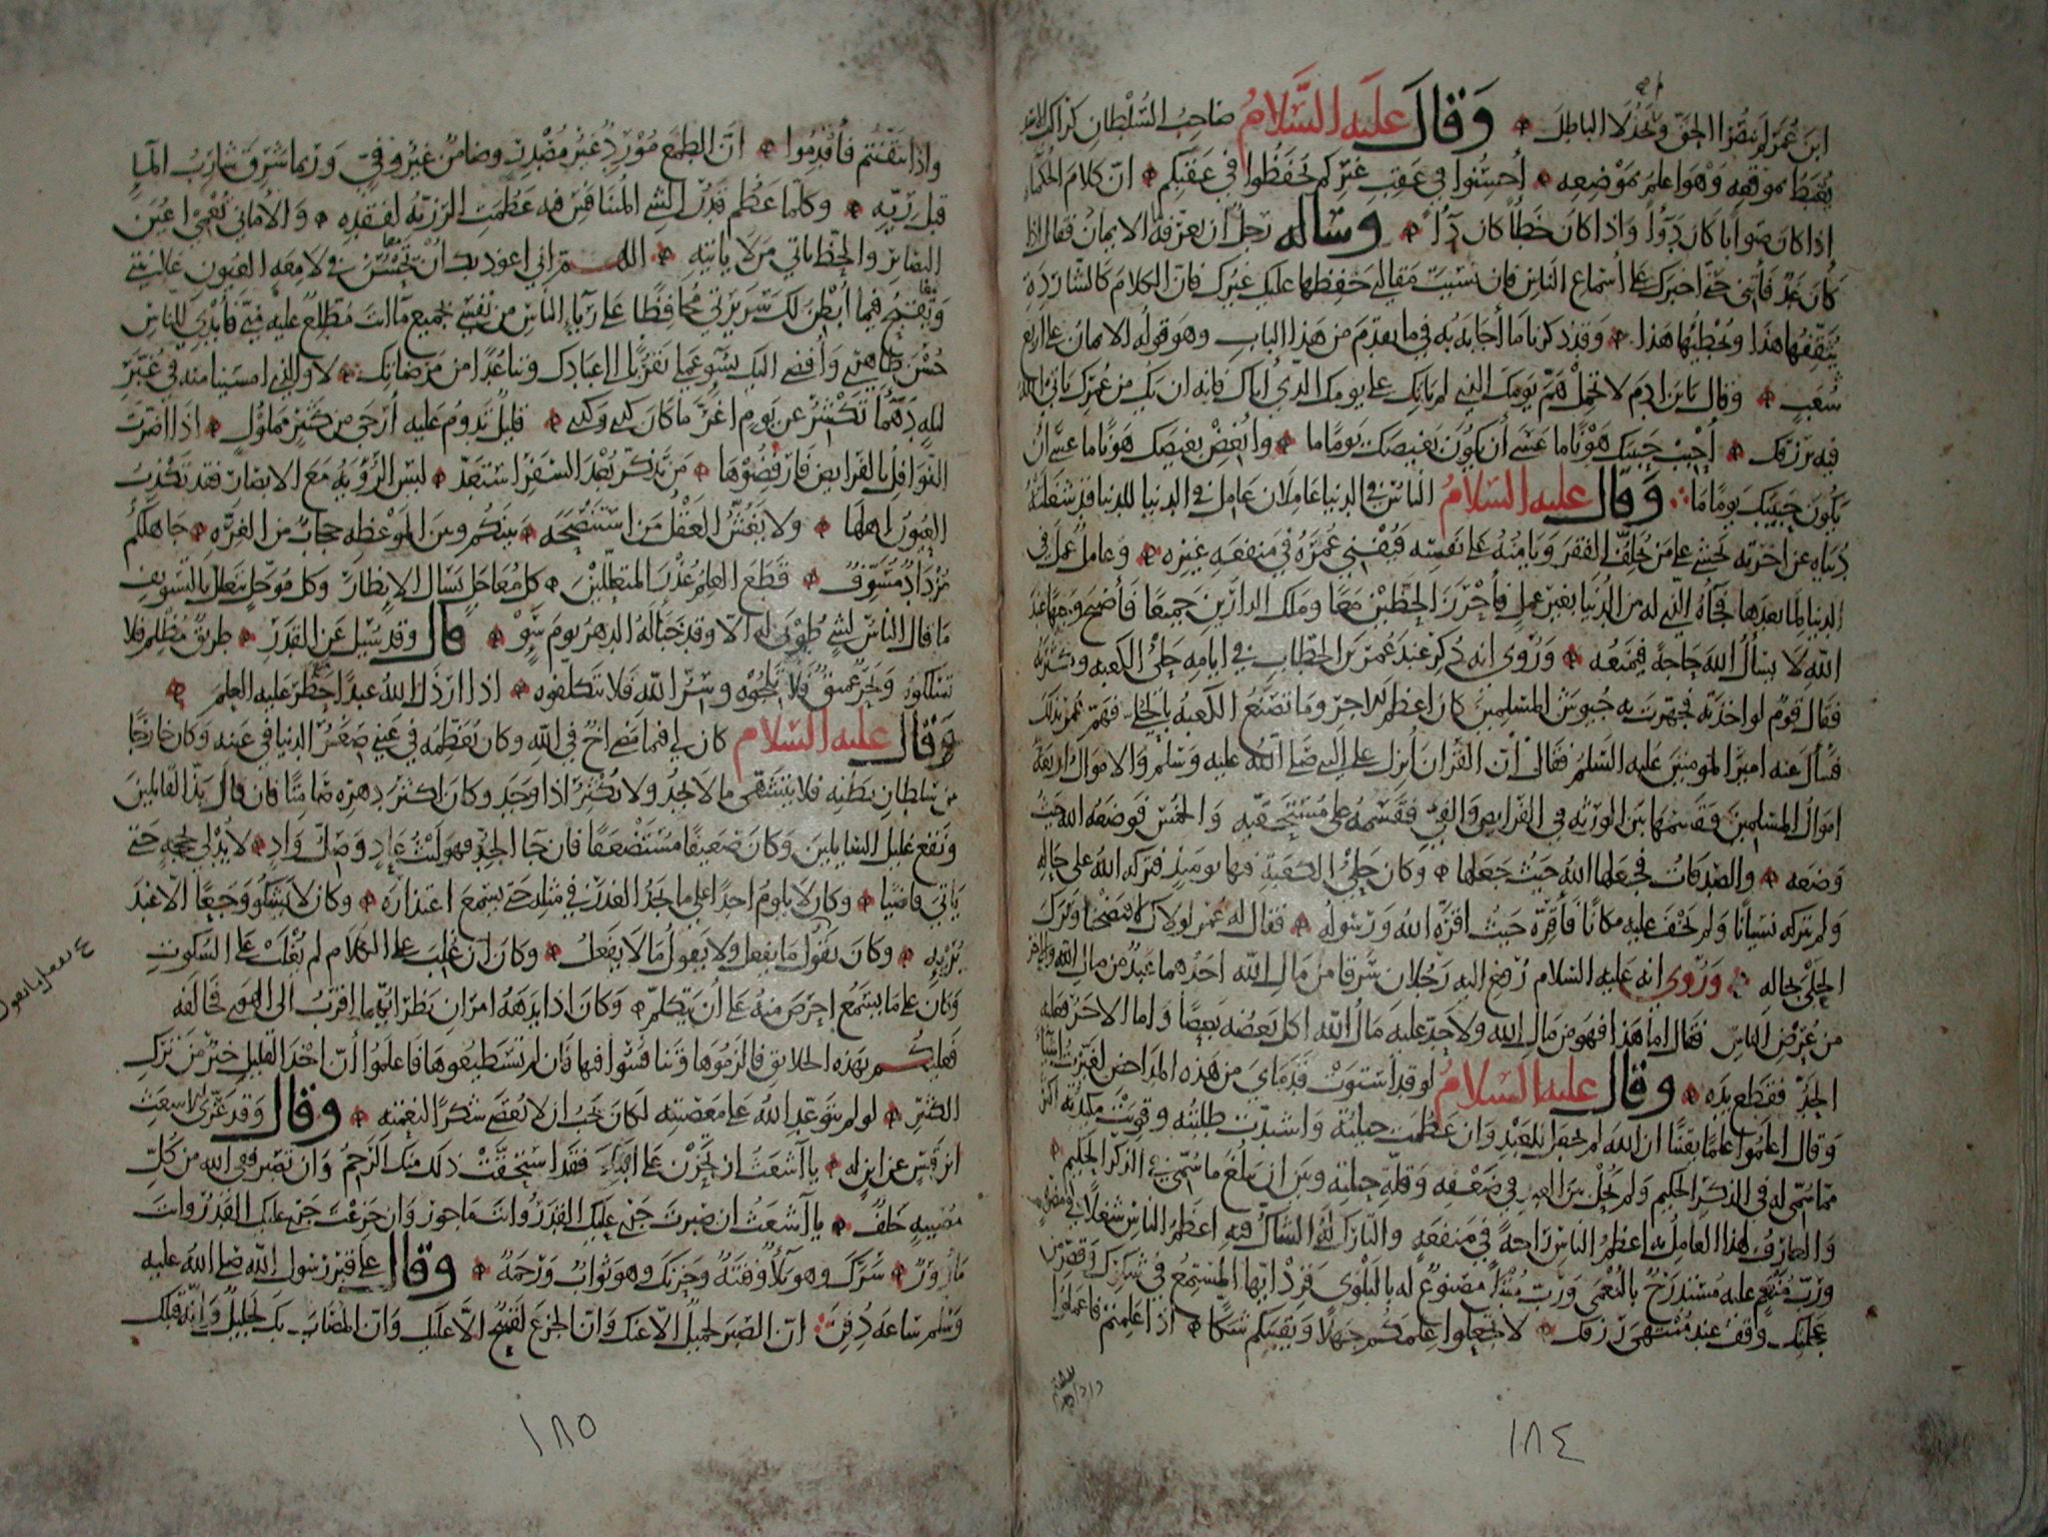 ابن عمر لم ينصرا الحق ولم يخذلا الباطل وقال عليه السلام صاحب السلطان كراكب الاسد
يغبط بموقعه وهو اعلم بموضعه أحسنوا في عقب غيركم تحفظوا في عقبكم ان كلام الحكماء
اذا كان صوابا كان دوآء واذا كان خطأ كان دآء وساله رجل ان يعرفه الايمان فقال اذا
كان غد فأتني حتى اخبرك على أسماع الناس فان نسيت مقالتي حفظها عليك غيرك فان الكلام كالشاردة
يثقفها هذا ويخطئها هذا وقد ذكرنا ما أجابه به فيما تقدم من هذا الباب وهو قوله الايمان على اربع
شعب وقال يابن ادم لا تحمل هم يومك الذي لم ياتك على يومك الذي أتاك فانه ان يك من عمرك يأتي الله
فيه برزقك أحبب حبيبك هونا ما عسى أن يكون بغيضك يوما ما وأبغض بغيضك هونا ما عسى أن
يكون حبيبك يوما ما وقال عليه السلام الناس في الدنيا عاملان عامل في الدنيا للدنيا قد شغلته
دنياه عن اخرته يخشى على من يخلف الفقر ويأمنه على نفسه فيفني عمره في منفعه غيره وعامل عمل في
الدنيا لما بعدها فجآه الذي له من الدنيا بغير عمل فأحرز الحظين معا وملك الدارين جميعا فأصبح وجيها عند
الله لا يسأل الله حاجة فيمنعه وروى انه ذكر عند عمر بن الخطاب في ايامه حلى الكعبه وكثرته
فقال قوم لو اخذته فجهزت به جيوش المسلمين كان اعظم للاجر وما تصنع الكعبه بالحلى فهم عمر بذلك
فسأل عنه امير المومنين عليه السلم فقال أن القرآن أنزل على النبي صلى الله عليه وسلم والاموال اربعة
اموال المسلمين فقسمها بين الورثه في الفرايض والفئ فقسمه على مستحقيه والخمس فوضعه الله حيث
وضعه والصدقات فجعلها الله حيث جعلها وكان حلى الكعبة فيها يوميذ فتركه الله على حاله
ولم يتركه نسيانا ولم تخف عليه مكانا فأقره حيث اقره الله ورسوله فقال له عمر لولاك لافتضحنا وترك
الحلى بحاله وروى انه عليه السلام رفع اليه رجلان سرقا من مال الله احدهما عبد من مال الله والاخر
من عرض الناس فقال اما هذا فهو من مال الله ولا حد عليه مال الله اكل بعضه بعضا واما الاخر فعليه
الحد فقطع يده وقال عليه السلام لو قد استوت قدماى من هذه المداحض لغيرت اشياء
وقال اعلموا علما يقينا ان الله لم يجعل للعبد وان عظمت حيلته واشتدت طلبته وقويت مكيدته اكثر
مما سمى له في الذكر الحكيم ولم يحل بين العبد في ضعفه وقلة حيلته وبين ان يبلغ ما سمى في الذكر الحكيم
والعارف لهذا العامل به اعظم الناس راحة في منفعه والتارك له الشاك فيه اعظم الناس شغلا في مضرة
ورب منعم عليه مستدرج بالنعمى ورب مبتلى مصنوع له بالبلوى فزد ايها المستمع في شكرك وقصر من
عجلتك وقف عند منتهى رزقك لا تجعلوا علمكم جهلا ويقينكم شكا اذا علمتم فاعملوا
١٨٤
واذا تيقنتم فأقدموا ان الطمع مورد غير مصدر وضامن غير وفي وربما شرق شارب المآء
قبل ريه وكلما عظم قدر الشي المتنافس فيه عظمت الرزيه لفقده والاماني تعمي اعين
البصائر والحظ ياتي من لا ياتيه اللهم اني اعوذ بك ان تحسن في لامعه العيون علانيتي
وتقبح فيما أبطن لك سريرتي محافظا على رياء الناس من نفسي بجميع ما انت مطلع عليه مني فأبدي للناس
حسن ظاهري وأفضي اليك بسوء عملي تقربا الى عبادك وتباعدا من مرضاتك لا والذي امسينا منه في غبر
ليله دهمآ تكشر عن يوم اغر ما كان كذى وكذى قليل تدوم عليه أرجى من كثير مملول اذا اضرت
النوافل بالفرايض فارفضوها من تذكر بعد السفر استعد ليس الرؤيه مع الابصار فقد تكذب
العيون اهلها ولا يغش العقل من استنصحه بينكم وبين الموعظه حجاب من الغره جاهلكم
مزداد مسوف قطع العلم عذر المتعللين كل معاجل يسال الانظار وكل موجل يتعلل بالتسويف
ما قال الناس لشي طوبى له الا وقد خبأ له الدهر يوم سوء قال وقد سيل عن القدر طريق مظلم فلا
تسلكوه وبحر عميق فلا تلجوه وسر الله فلا تتكلفوه اذا ارذل الله عبدا حظر عليه العلم
وقال عليه السلام كان لي فيما مضى اخ في الله وكان يعظمه في عيني صغر الدنيا في عينه وكان خارجا
من سلطان بطنه فلا يتشهى ما لا يجد ولا يكثر اذا وجد وكان اكثر دهره صامتا فان قال بذ القائلين
ونقع غليل السايلين وكان ضعيفا مستضعفا فان جا الجد فهو ليث عاد وصل واد لا يدلي بحجه حتى
ياتي قاضيا وكان لا يلوم احدا على ما يجد العذر في مثله حتى يسمع اعتذاره وكان لا يشكو وجعا الا عند
بريه وكان يقول ما يفعل ولا يقول ما لا يفعل وكان ان غلب على الكلام لم يغلب على السكوت
وكان على ما يسمع احرص منه على أن يتكلم وكان اذا بدهه امران نظر ايهما اقرب الى الهوى فخالفه
فعليكم بهذه الخلائق فالزموها وتنافسوا فيها فان لم تستطيعوها فاعلموا أن اخذ القليل خير من ترك
الكثير لو لم يتوعد الله على معصيته لكان يجب ان لا يعصى شكرا لنعمته وقال وقد عزى الاشعث
ابن قيس عن ابن له يا أشعث ان تحزن على ابنك فقد استحقت ذلك منك الرحم وان تصبر ففي الله من كل
مصيبه خلف يا أشعث ان صبرت جرى عليك القدر وانت ماجور وان جزعت جرى عليك القدر وانت
مأزور سرك وهو بلاء وفتنة وحزنك وهو ثواب ورحمة وقال على قبر رسول الله صلى الله عليه
وسلم ساعه دفن ان الصبر لجميل الا عنك وان الجزع لقبيح الا عليك وان المصاب بك لجليل وانه قبلك
١٨٥